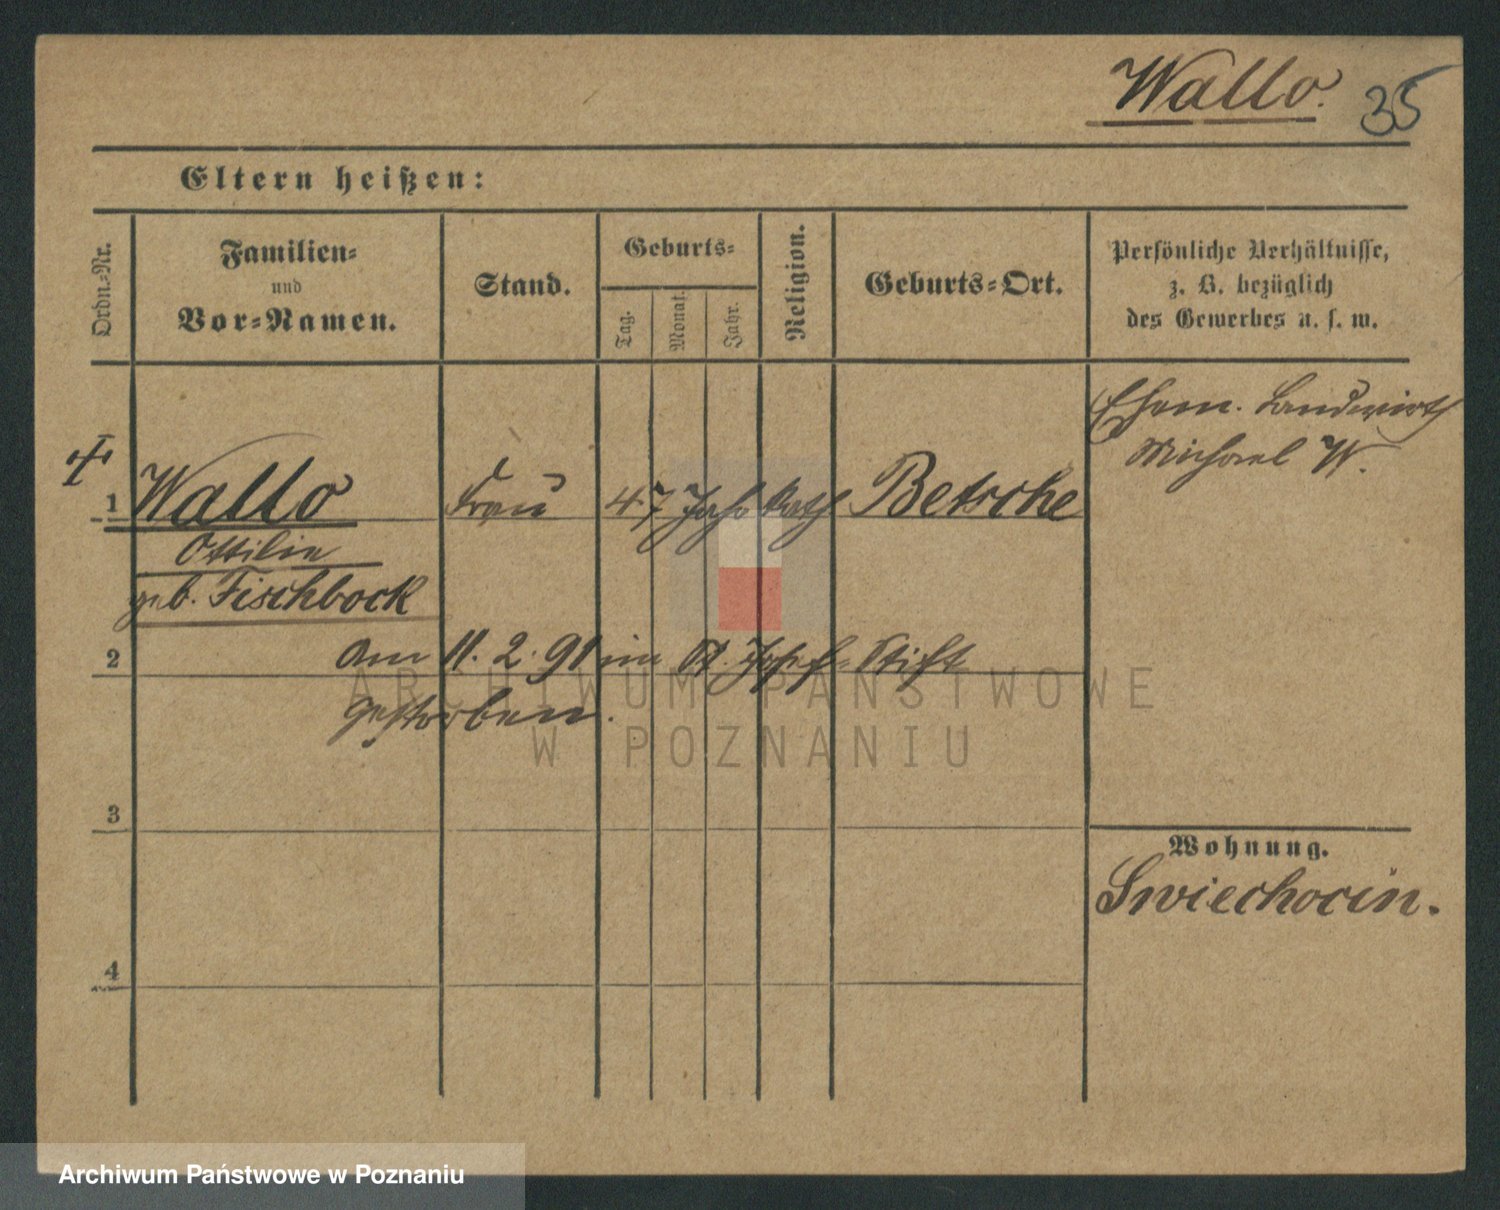 Wallo. 35
Eltern heißen:
Ordn.-Nr.
Familien-
und
Vor-Namen.
Stand.
Geburts-
Tag.
Monat.
Jahr.
Religion.
Geburts-Ort.
Persönliche Verhältnisse,
z. B. bezüglich
des Gewerbes u. s. w.
Ehem. Landwirth
Michael W.
1 Wallo Frau 47 Jahr Kath Betsche
Ottilie
geb. Fischbock
2 am 11. 2. 91 im St. Josef-Stift
gestorben.
ARCHIWUM PAŃSTWOWE
W POZNANIU
3
Wohnung.
Swiechocin.
4
Archiwum Państwowe w Poznaniu